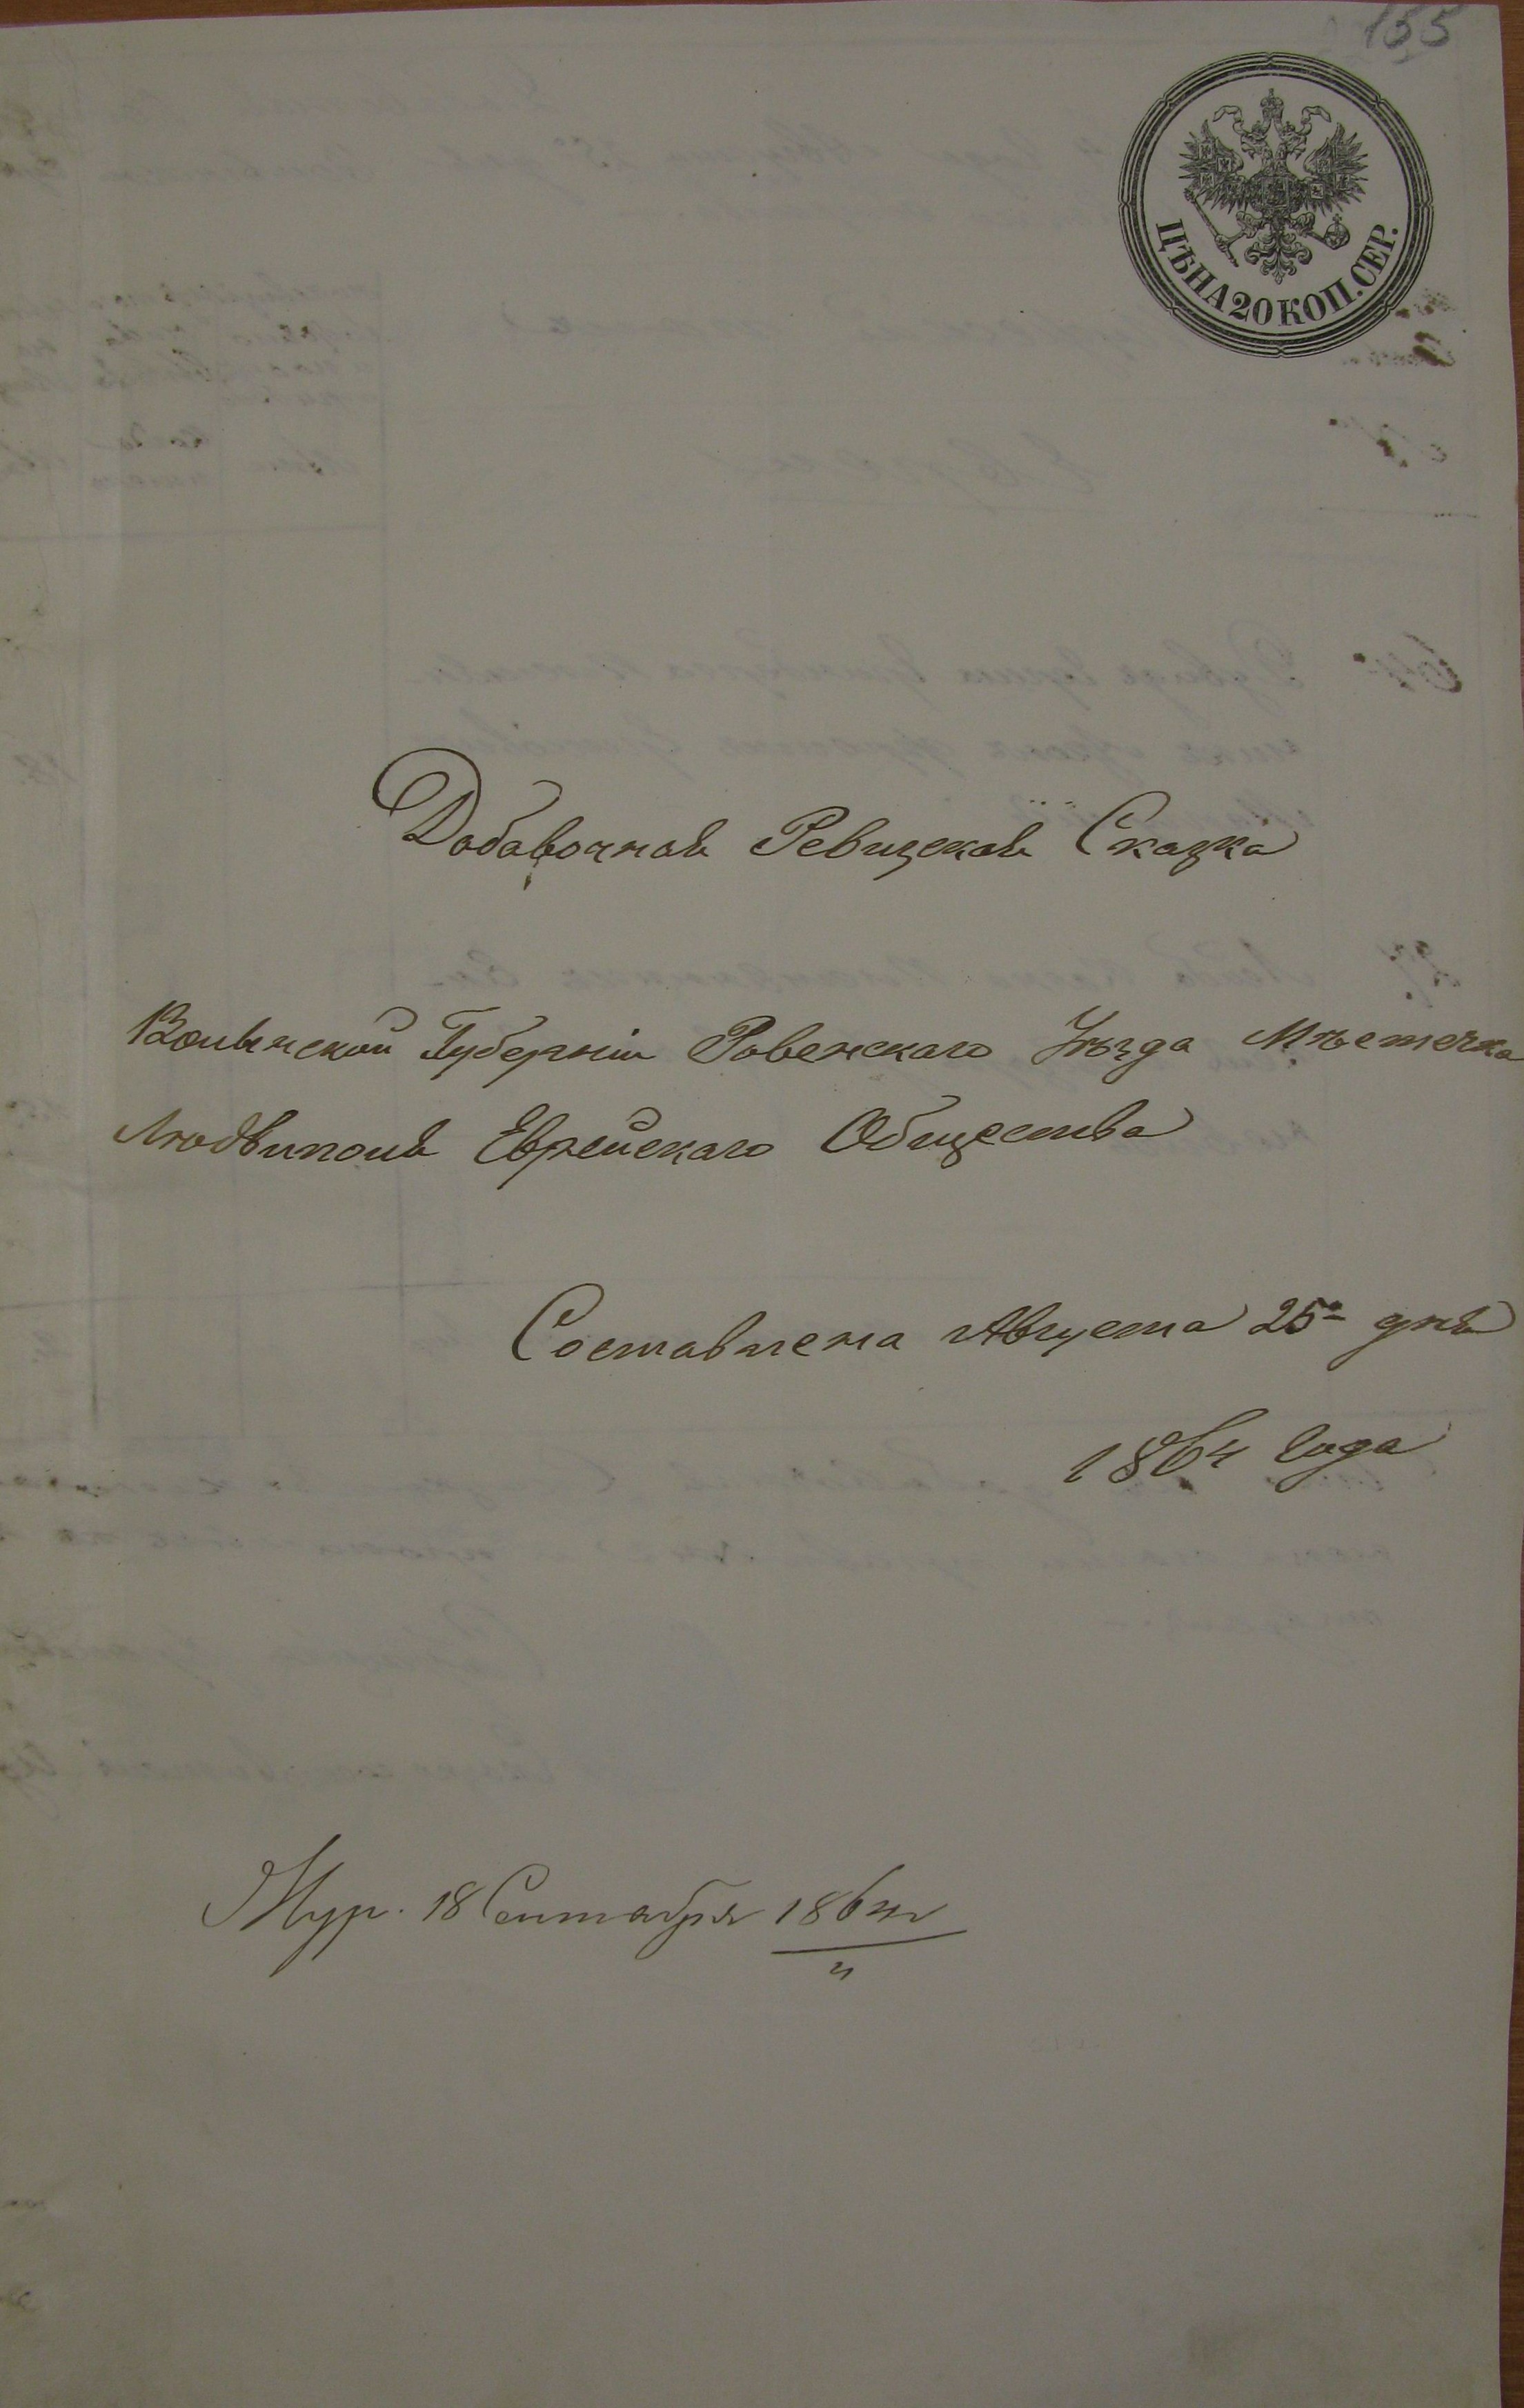 155
ЦѢНА 20 КОП. СЕР.
Добавочная Ревизская Сказка
Волынской Губерніи Ровенскаго Уѣзда Мѣстечка
Людвиполя Еврейскаго Общества
Составлена Августа 25 дня
1864 Года
Жур. 18 Сентября 1864